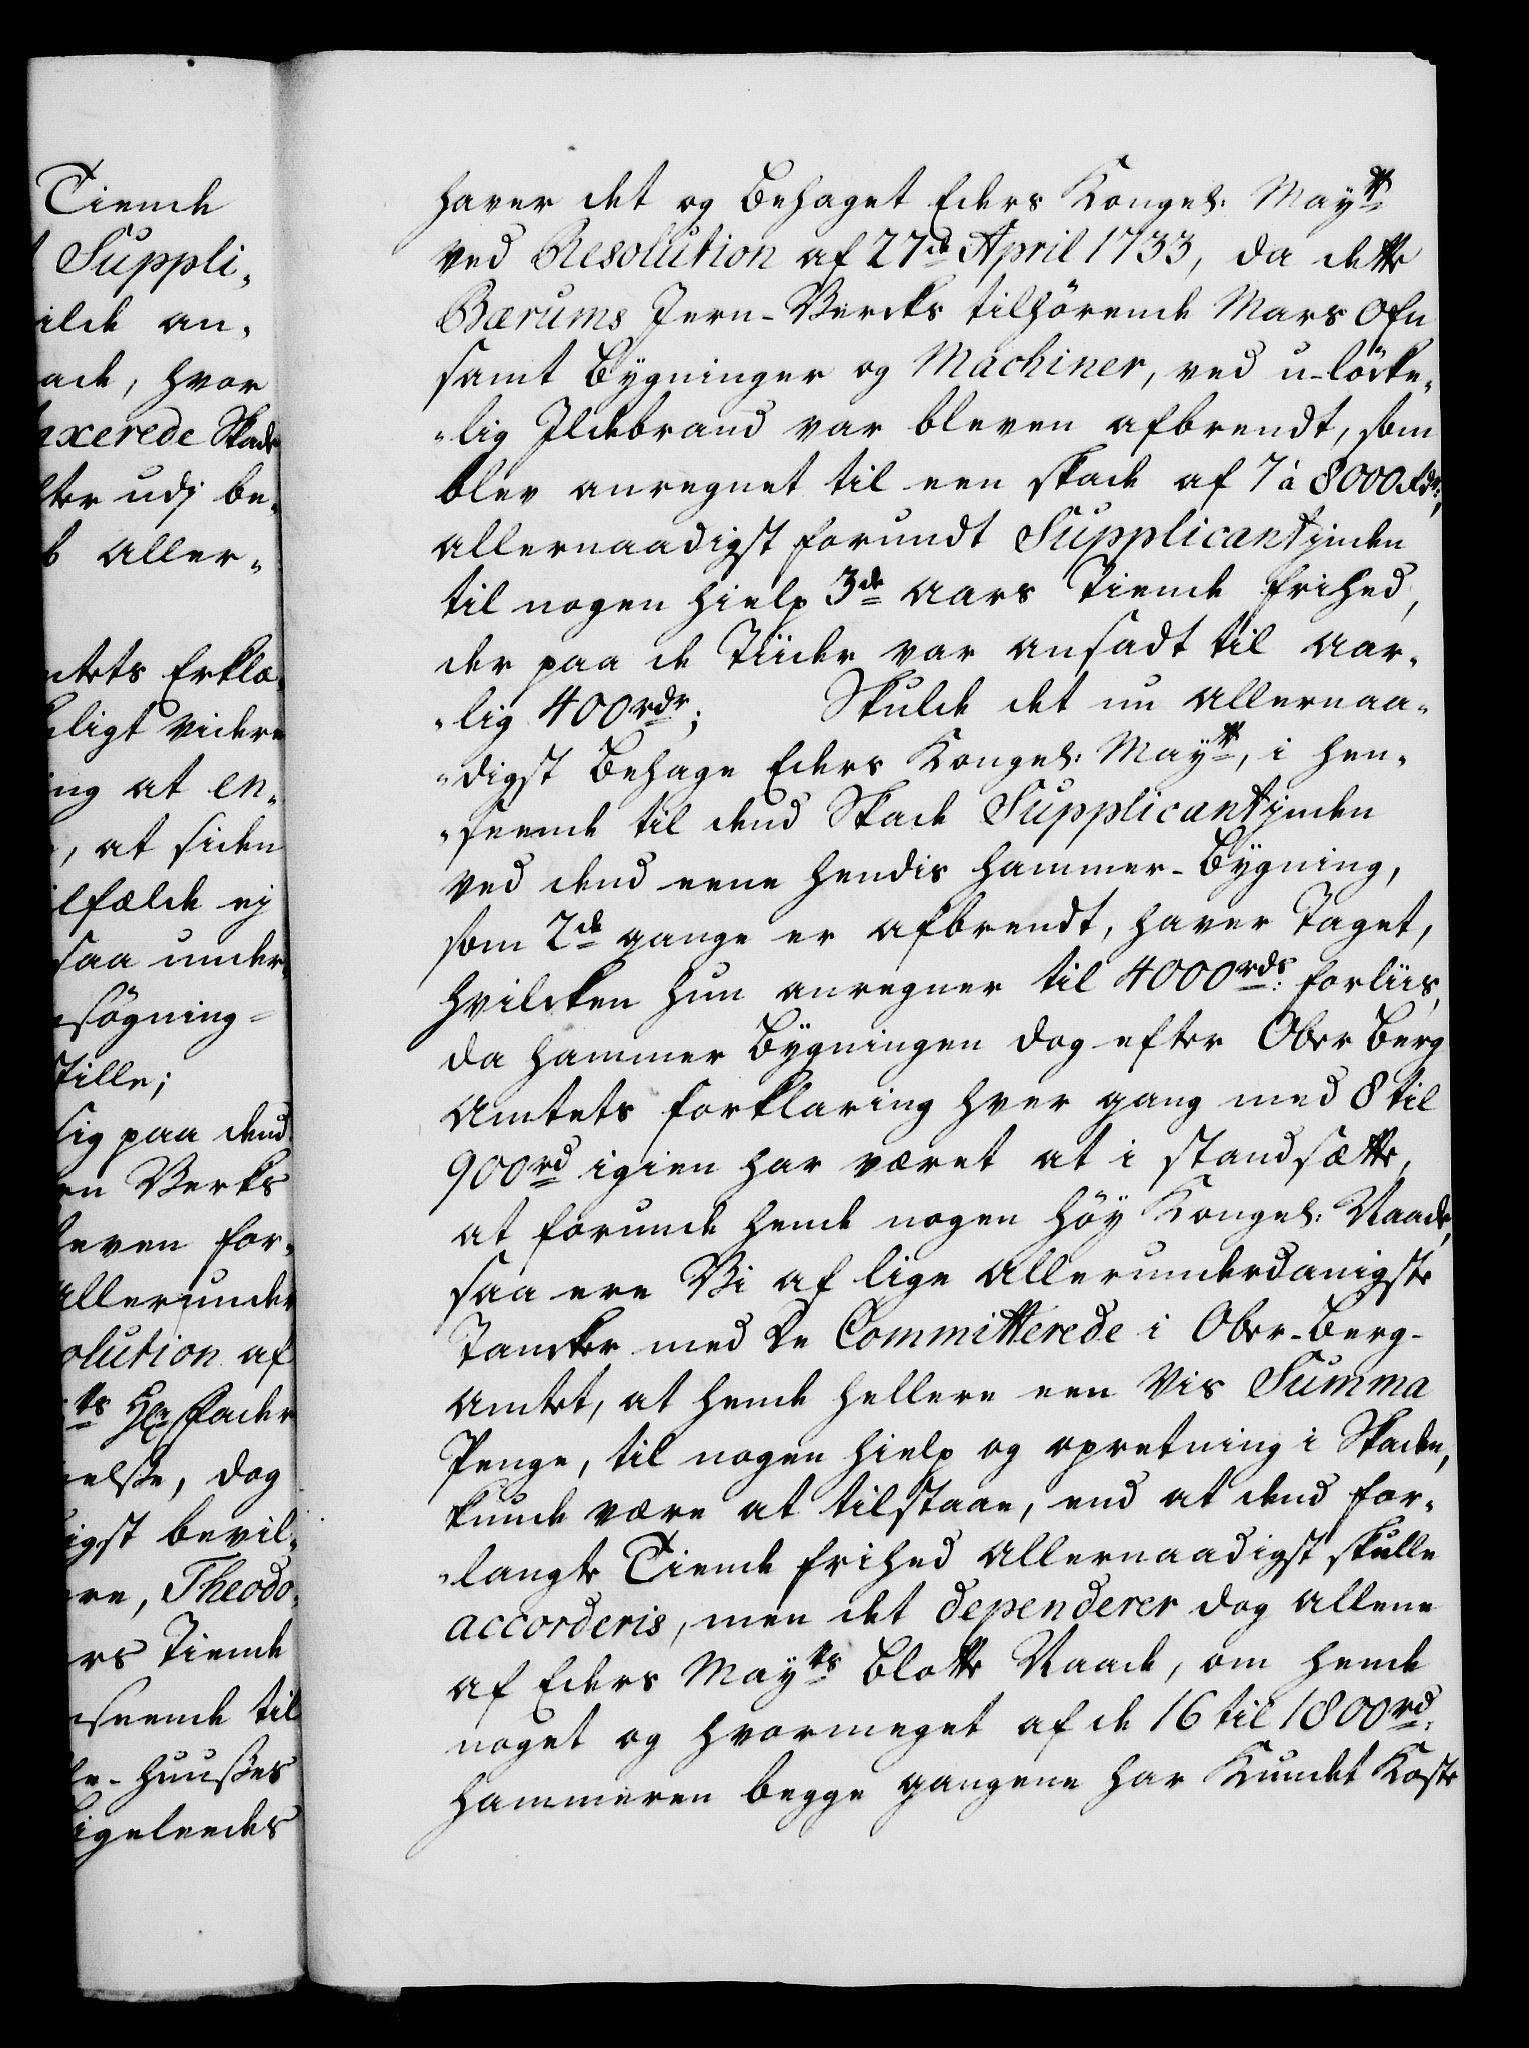 Tiende
Suppli„
ilde an„
ade, hvor
axerede Skade
ter udj be„
b aller„
dtets Erklæ„
eligt videre
ing at en„
, at siden
ilfælde ej
saa under„
søgning
stille;
sig paa dend
en Verks
leven for„
allerunder
olution af
ts Hr Fader
else, dog
igst bevil„
re, Theodo„
rs Tiende
seende til
e-Huuses
igeleedes
haver det og behaget Eders Kongel: Maytt
ved Resolution af 27de April 1733, da dette
Bærums Jern-Vercks tilhörende Mars Ofn
samt Bygninger og Machiner, ved u-löcke„
„lig Ildebrand var bleven afbrendt, som
blev anregnet til een skade af 7 à 8000 Rdr;
allernaadigst forundt Supplicantjnden
til nogen hielp 3de Aars Tiende frihed,
der paa de Tiider var ansadt til aar„
„lig 400 rdr; Skulde det nu allernaa„
„digst behage Eders Kongel: Maytt, i hen„
„seende til dend Skade Supplicantjnden
ved dend eene hendis Hammer-Bygning,
som 2de gange er afbrendt, haver Taget,
hvilcken hun anregner til 4000 rds: forliis,
da Hammer Bygningen dog efter Ober Berg
Amtets forklaring hver gang med 8 til
900 rd igien har været at i standsætte,
at forunde hende nogen höy Kongel: Naade,
saa ere Vi af lige allerunderdanigste
Tancker med De Committerede i Ober-Berg-
Amtet, at hende hellere een vis Summa
Penge, til nogen hielp og opretning i Skaden,
kunde være at tilstaae, end at dend for„
„langte Tiende frihed allernaadigst skulle
accorderis, men det dependerer dog allene
af Eders Mayts blotte Naade, om hende
noget og hvormeget af de 16 til 1800 rd:
Hammeren begge gangene har Kundet Koste